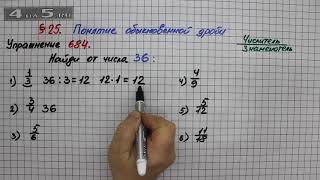 4 на 5.ru
§ 25. Понятие обыкновенной дроби
Упражнение 684.
Числитель
Знаменатель
Найди от числа 36:
1) 1/3 36 : 3 = 12 12 · 1 = 12
4) 4/9
2) 3/4 36
5) 5/12
3) 5/6
6) 11/18